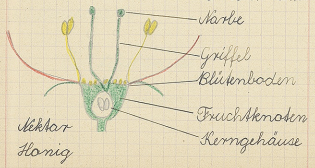 Narbe
Griffel
Blütenboden
Fruchtknoten
Kerngehäuse
Nektar
Honig